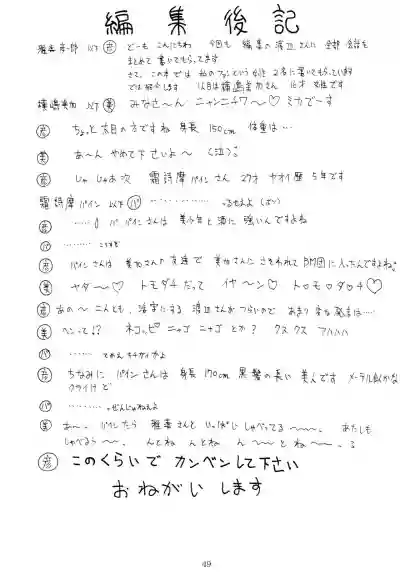 編集後記
以下 彦 どーも こんにちわ 今回も 編集の渡辺さんに 全部 会話を
まとめて書いてもらってます
さて、この本では 私のファンという 2名に書いてもらっています
以下 美 みなさ〜ん ニャンニチワ〜♡ ミカで〜す
彦 ちょっと太目の方ですね 身長 150cm 体重は…
美 あ〜ん やめて下さいよ〜 (泣)
彦 じゃ じゃあ次 霜詩摩パインさん ヤオイ歴 5年です
霜詩摩パイン 以下 パ ‥‥‥‥‥‥
彦 ‥‥‥ パ パインさんは 美少年と酒に 強いんですよね
パ ‥‥‥‥
彦 パインさんは 美加さんの友達で 美加さんにさそわれて 入ったんですよね。
美 ヤダ〜♡ トモダチだって イヤ〜ン♡ ト・モ・ダ・チ♡
彦 あの〜 こんとも、活字にする 渡辺さんがつらいので あまり 変な発言は‥‥
美 ヘンって!? ネコッピ ニャゴ ニャゴ とか? クス クス アハハハ
パ ‥‥‥
彦 ちなみに パインさんは 身長 170cm 黒髪の長い 美人です メーテル似かな
クライけど
パ ‥‥‥‥ 。ぜんじゃねえよ
美 あ〜。 パインたら 雅彦さんと いっぱい しゃべってる〜〜〜。 あたしも
しゃべるぅ〜。 んとね んとね ん〜〜と ね〜〜。
彦 このくらいで カンベンして下さい
おねがいします
49